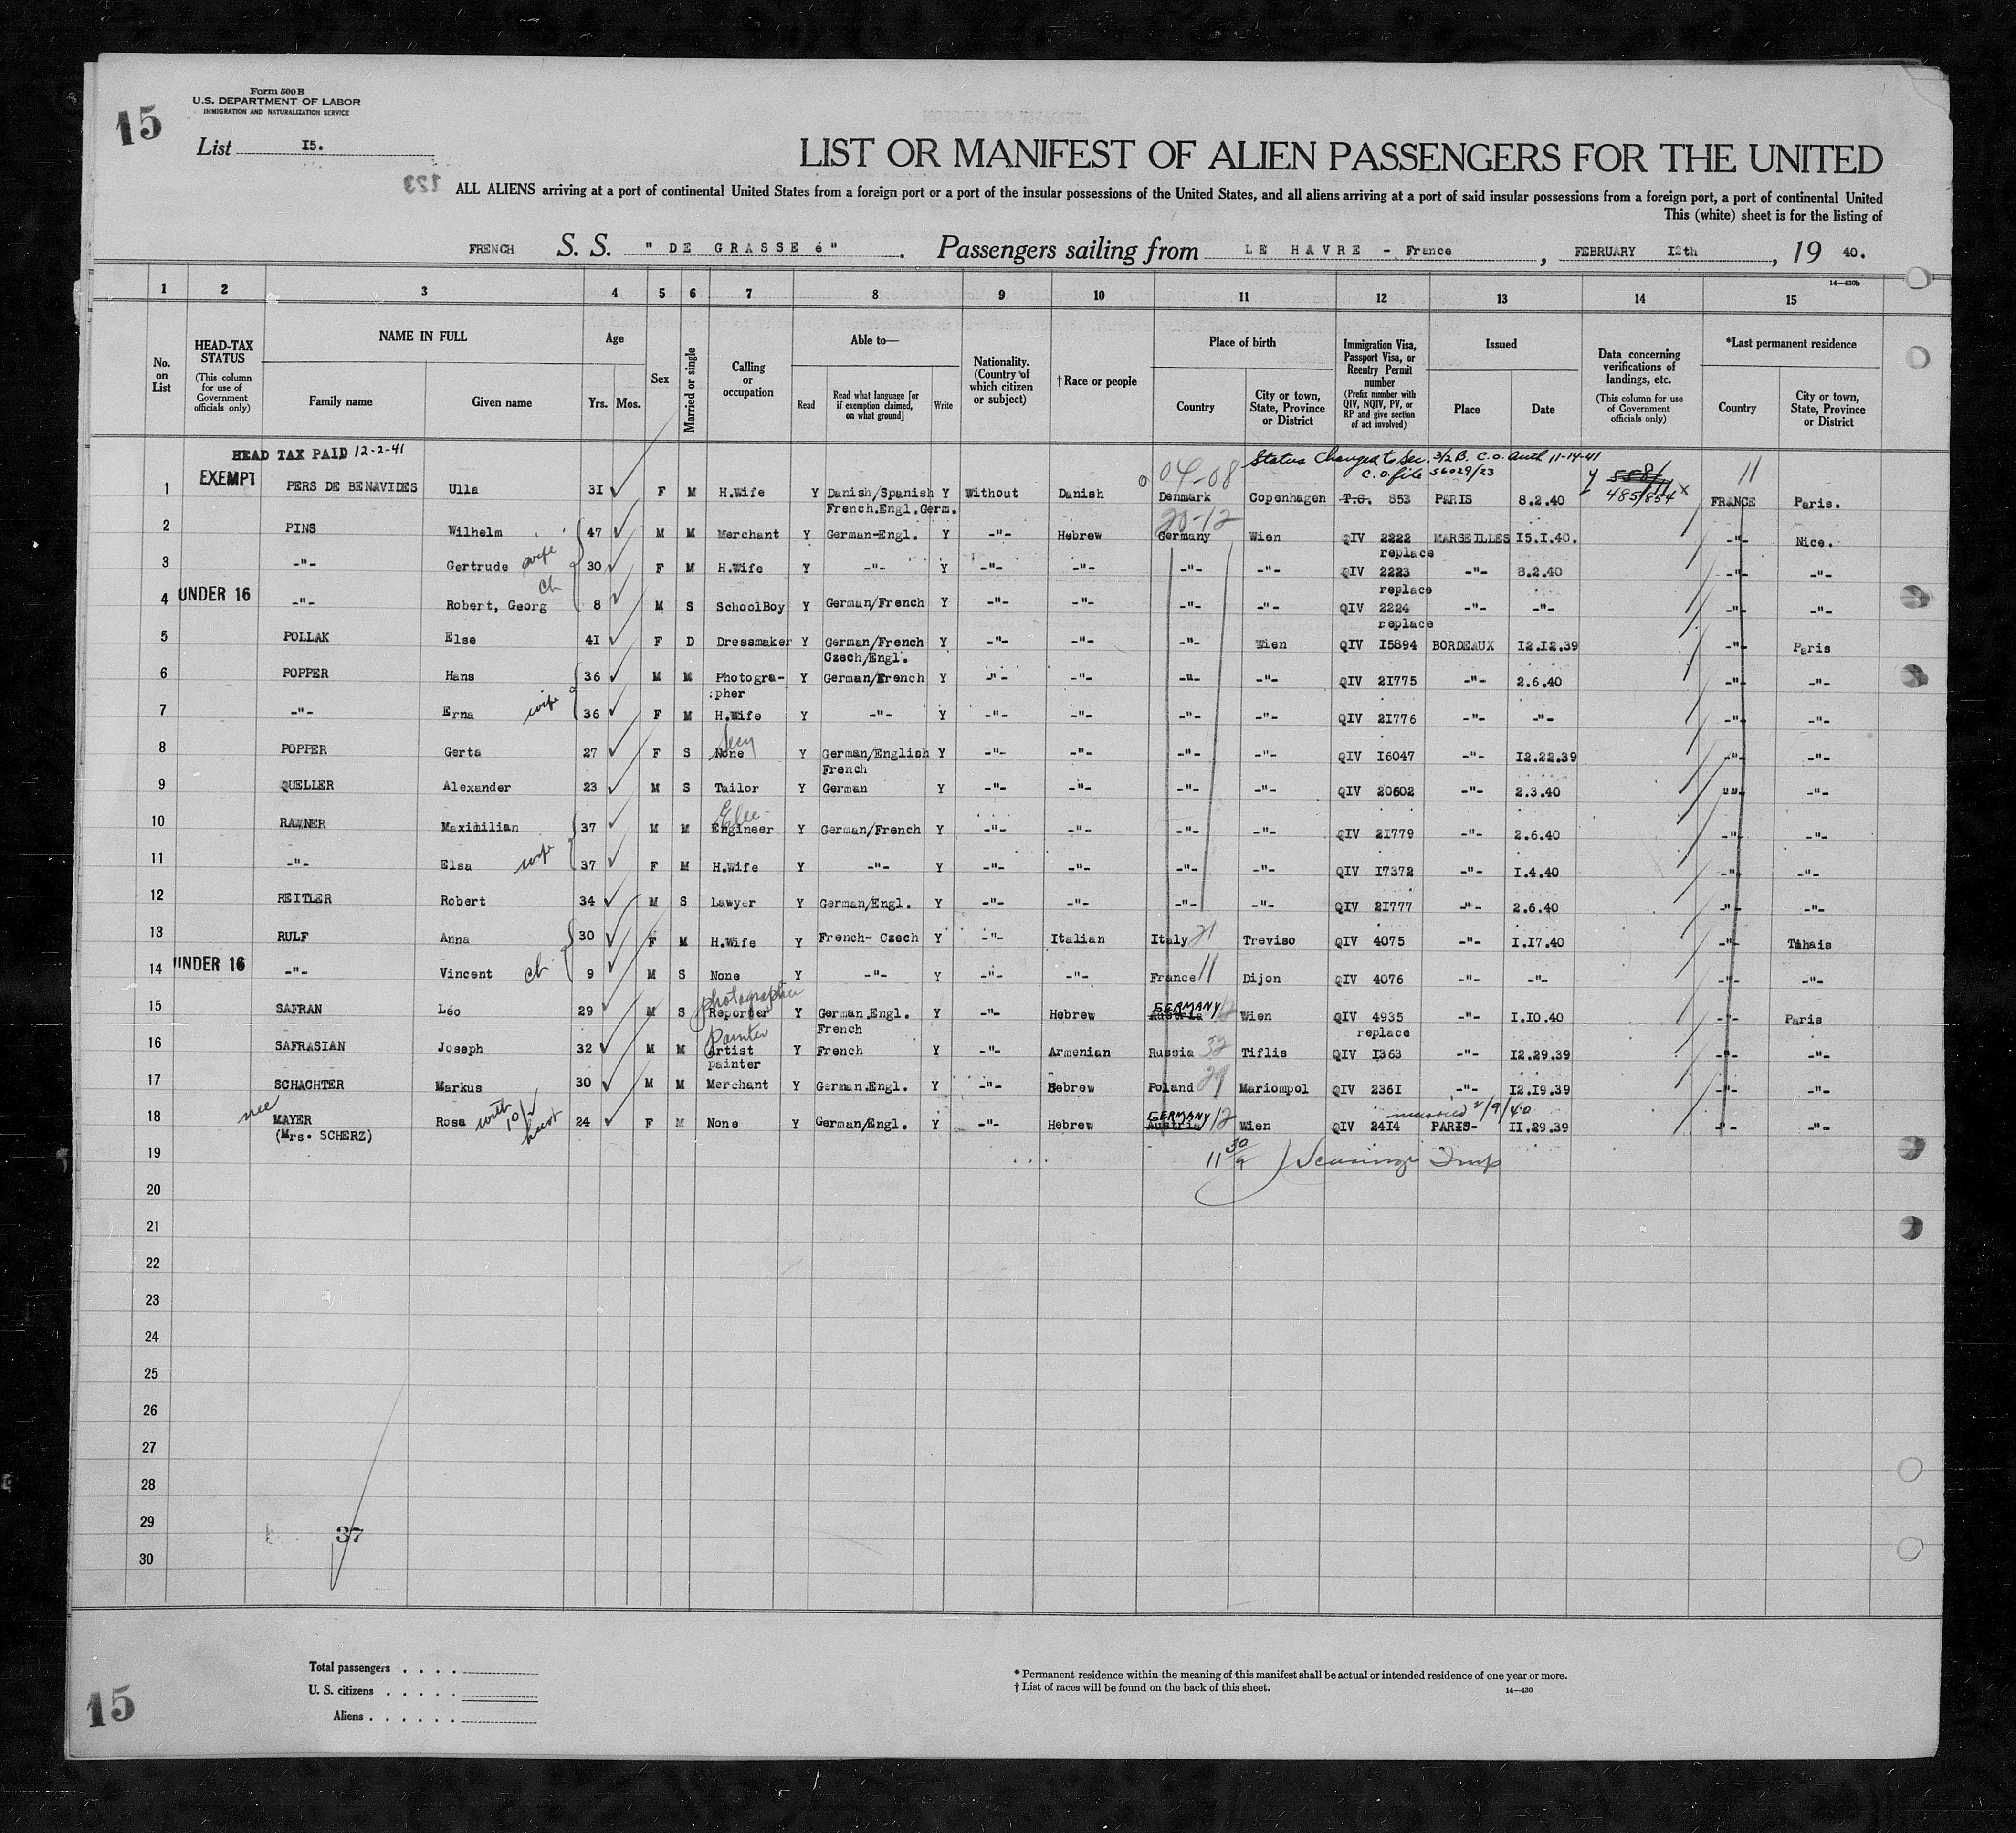 15
Form 500 B
U.S. DEPARTMENT OF LABOR
IMMIGRATION AND NATURALIZATION SERVICE
List I5.
123
LIST OR MANIFEST OF ALIEN PASSENGERS FOR THE UNITED
ALL ALIENS arriving at a port of continental United States from a foreign port or a port of the insular possessions of the United States, and all aliens arriving at a port of said insular possessions from a foreign port, a port of continental United
This (white) sheet is for the listing of
FRENCH S. S. " DE GRASSE é". Passengers sailing from LE HAVRE - France, FEBRUARY I2th, 19 40.
14—430b
1 2 3 4 5 6 7 8 9 10 11 12 13 14 15
No. on List
HEAD-TAX STATUS (This column for use of Government officials only)
NAME IN FULL Family name Given name
Age Yrs. Mos.
Sex
Married or single
Calling or occupation
Able to— Read Read what language [or if exemption claimed, on what ground] Write
Nationality. (Country of which citizen or subject)
†Race or people
Place of birth Country City or town, State, Province or District
Immigration Visa, Passport Visa, or Reentry Permit number (Prefix number with QIV, NQIV, PV, or RP and give section of act involved)
Issued Place Date
Data concerning verifications of landings, etc. (This column for use of Government officials only)
*Last permanent residence Country City or town, State, Province or District
HEAD TAX PAID 12-2-41 Status Changed to Sec. 3/2 B. C.O. Auth 11-14-41
EXEMPT 04-08 C.O. file 56029/23 11
1 PERS DE BENAVIDES Ulla 3I F M H.Wife Y Danish/Spanish Y Without Danish Denmark Copenhagen T.C. 853 PARIS 8.2.40 485/854 X FRANCE Paris.
French.Engl.Germ. 20-12
2 PINS Wilhelm 47 M M Merchant Y German-Engl. Y -"- Hebrew Germany Wien QIV 2222 MARSEILLES I5.I.40. -"- Nice.
replace
3 -"- Gertrude wife 30 F M H.Wife Y -"- Y -"- -"- -"- -"- QIV 2223 -"- 8.2.40 -"- -"-
replace
4 UNDER 16 -"- Robert, Georg ch 8 M S SchoolBoy Y German/French Y -"- -"- -"- -"- QIV 2224 -"- -"- -"- -"-
replace
5 POLLAK Else 4I F D Dressmaker Y German/French Y -"- -"- -"- Wien QIV I5894 BORDEAUX I2.I2.39 -"- Paris
Czech/Engl.
6 POPPER Hans 36 M M Photogra- Y German/French Y -"- -"- -"- -"- QIV 2I775 -"- 2.6.40 -"- -"-
:pher
7 -"- Erna wife 36 F M H.Wife Y -"- Y -"- -"- -"- -"- QIV 2I776 -"- -"- -"- -"-
8 POPPER Gerta 27 F S None Y German/English Y -"- -"- -"- -"- QIV I6047 -"- I2.22.39 -"- -"-
French
9 QUELLER Alexander 23 M S Tailor Y German Y -"- -"- -"- -"- QIV 20602 -"- 2.3.40 "" -"-
Elec-
10 RAWNER Maximilian 37 M M Engineer Y German/French Y -"- -"- -"- -"- QIV 2I779 -"- 2.6.40 -"- -"-
11 -"- Elsa wife 37 F M H.Wife Y -"- Y -"- -"- -"- -"- QIV I7372 -"- I.4.40 -"- -"-
12 REITLER Robert 34 M S Lawyer Y German/Engl. Y -"- -"- -"- -"- QIV 2I777 -"- 2.6.40 -"- -"-
13 RULF Anna 30 F M H.Wife Y French- Czech Y -"- Italian Italy 21 Treviso QIV 4075 -"- I.I7.40 -"- Thais
14 UNDER 16 -"- Vincent ch 9 M S None Y -"- Y -"- -"- France 11 Dijon QIV 4076 -"- -"- -"- -"-
photographer GERMANY
15 SAFRAN Léo 29 M S Reporter Y German.Engl. Y -"- Hebrew Austria 12 Wien QIV 4935 -"- I.I0.40 -"- Paris
Painter French replace
16 SAFRASIAN Joseph 32 M M Artist Y French Y -"- Armenian Russia 32 Tiflis QIV I363 -"- I2.29.39 -"- -"-
painter
17 SCHACHTER Markus 30 M M Merchant Y German.Engl. Y -"- Hebrew Poland 29 Mariompol QIV 236I -"- I2.I9.39 -"- -"-
nee GERMANY married 2/9/40
18 MAYER Rosa with 10/2 husb 24 F M None Y German/Engl. Y -"- Hebrew Austria 12 Wien QIV 24I4 PARIS- II.29.39 -"- -"-
(Mrs. SCHERZ)
19 11 30/a
20
21
22
23
24
25
26
27
28
29
37
30
Total passengers
U. S. citizens
Aliens
* Permanent residence within the meaning of this manifest shall be actual or intended residence of one year or more.
† List of races will be found on the back of this sheet.
14—430
15